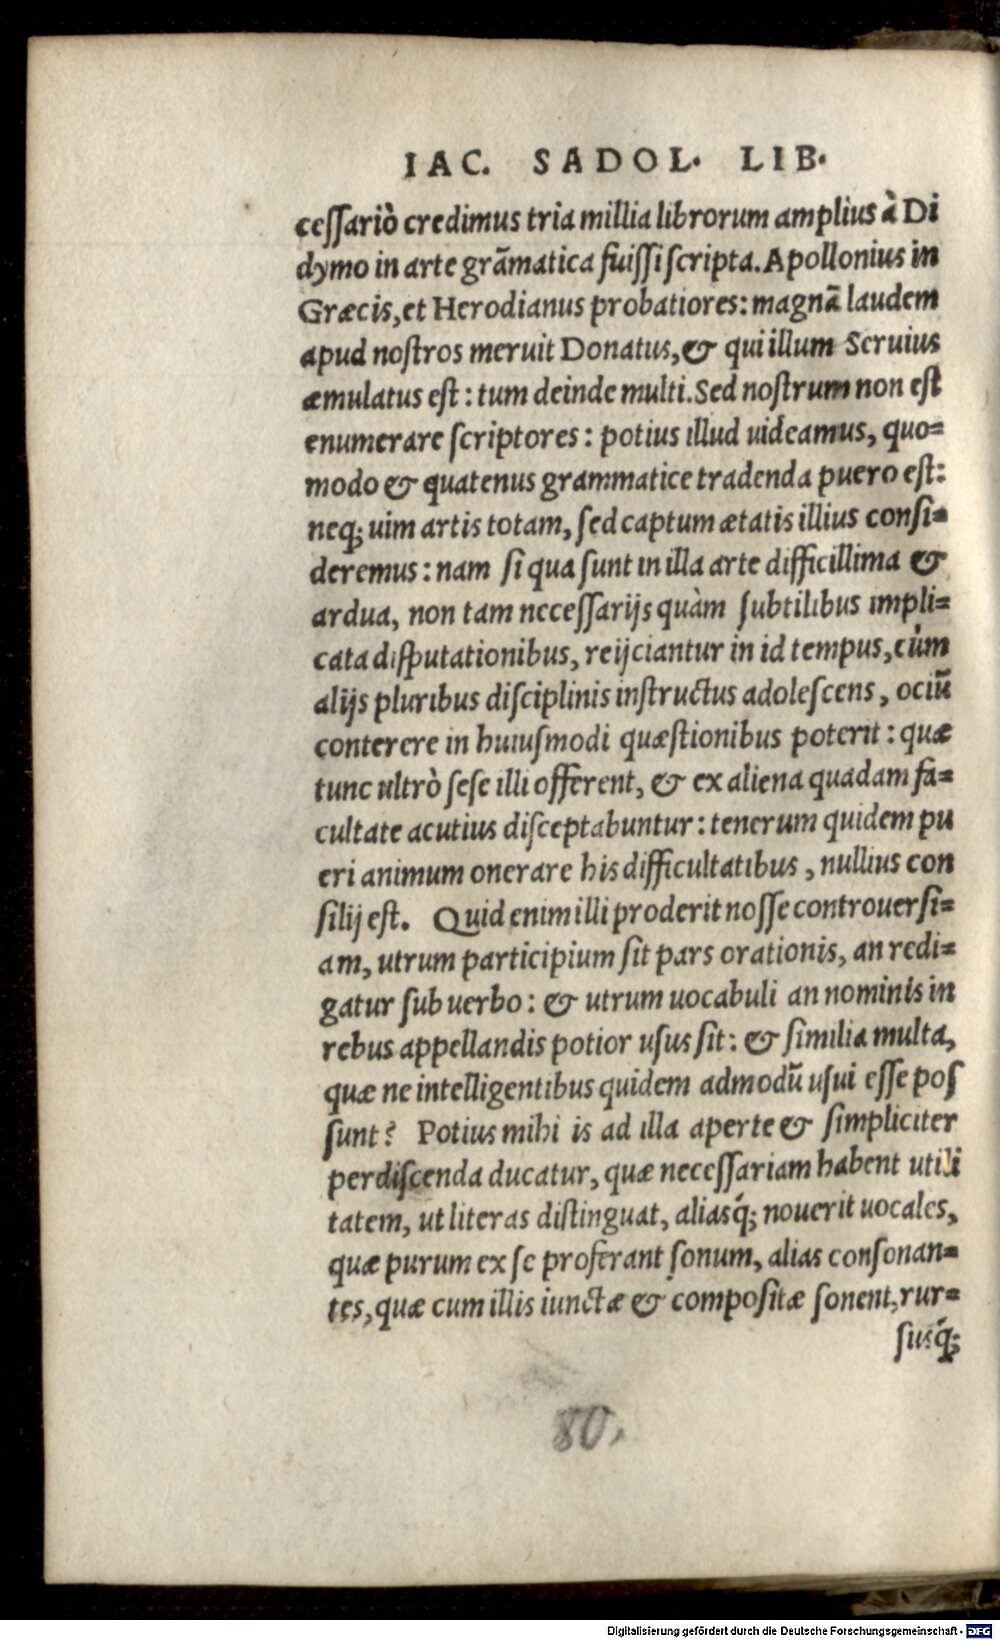 IAC. SADOL. LIB.
ceſſariò credimus tria millia librorum amplius à Di
dymo in arte grāmatica fuiſſi ſcripta. Apollonius in
Græcis, et Herodianus probatiores: magnā laudem
apud noſtros meruit Donatus, & qui illum Seruius
æmulatus eſt: tum deinde multi. Sed noſtrum non eſt
enumerare ſcriptores: potius illud uideamus, quo=
modo & quatenus grammatice tradenda puero eſt:
neq; uim artis totam, ſed captum ætatis illius conſi=
deremus: nam ſi qua ſunt in illa arte difficillima &
ardua, non tam neceſſarijs quàm ſubtilibus impli=
cata diſputationibus, reijciantur in id tempus, cùm
alijs pluribus diſciplinis inſtructus adoleſcens, ociū
conterere in huiuſmodi quæſtionibus poterit: quæ
tunc ultrò ſeſe illi offerent, & ex aliena quadam fa=
cultate acutius diſceptabuntur: tenerum quidem pu
eri animum onerare his difficultatibus, nullius con
ſilij eſt. Quid enim illi proderit noſſe controuerſi=
am, utrum participium ſit pars orationis, an redi=
gatur ſub uerbo: & utrum uocabuli an nominis in
rebus appellandis potior uſus ſit: & ſimilia multa,
quæ ne intelligentibus quidem admodū uſui eſſe poſ
ſunt? Potius mihi is ad illa aperte & ſimpliciter
perdiſcenda ducatur, quæ neceſſariam habent utili
tatem, ut literas diſtinguat, aliasq́; nouerit uocales,
quæ purum ex ſe proferant ſonum, alias conſonan=
tes, quæ cum illis iunctæ & compoſitæ ſonent, rur=
ſusq́;
80,
Digitalisierung gefördert durch die Deutsche Forschungsgemeinschaft - DFG